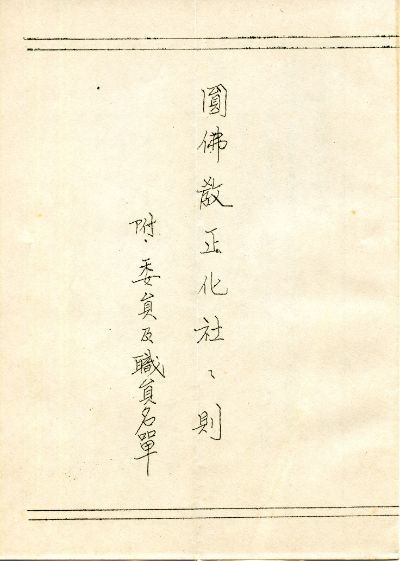 圓佛敎正化社〻則
附、委員及職員名單